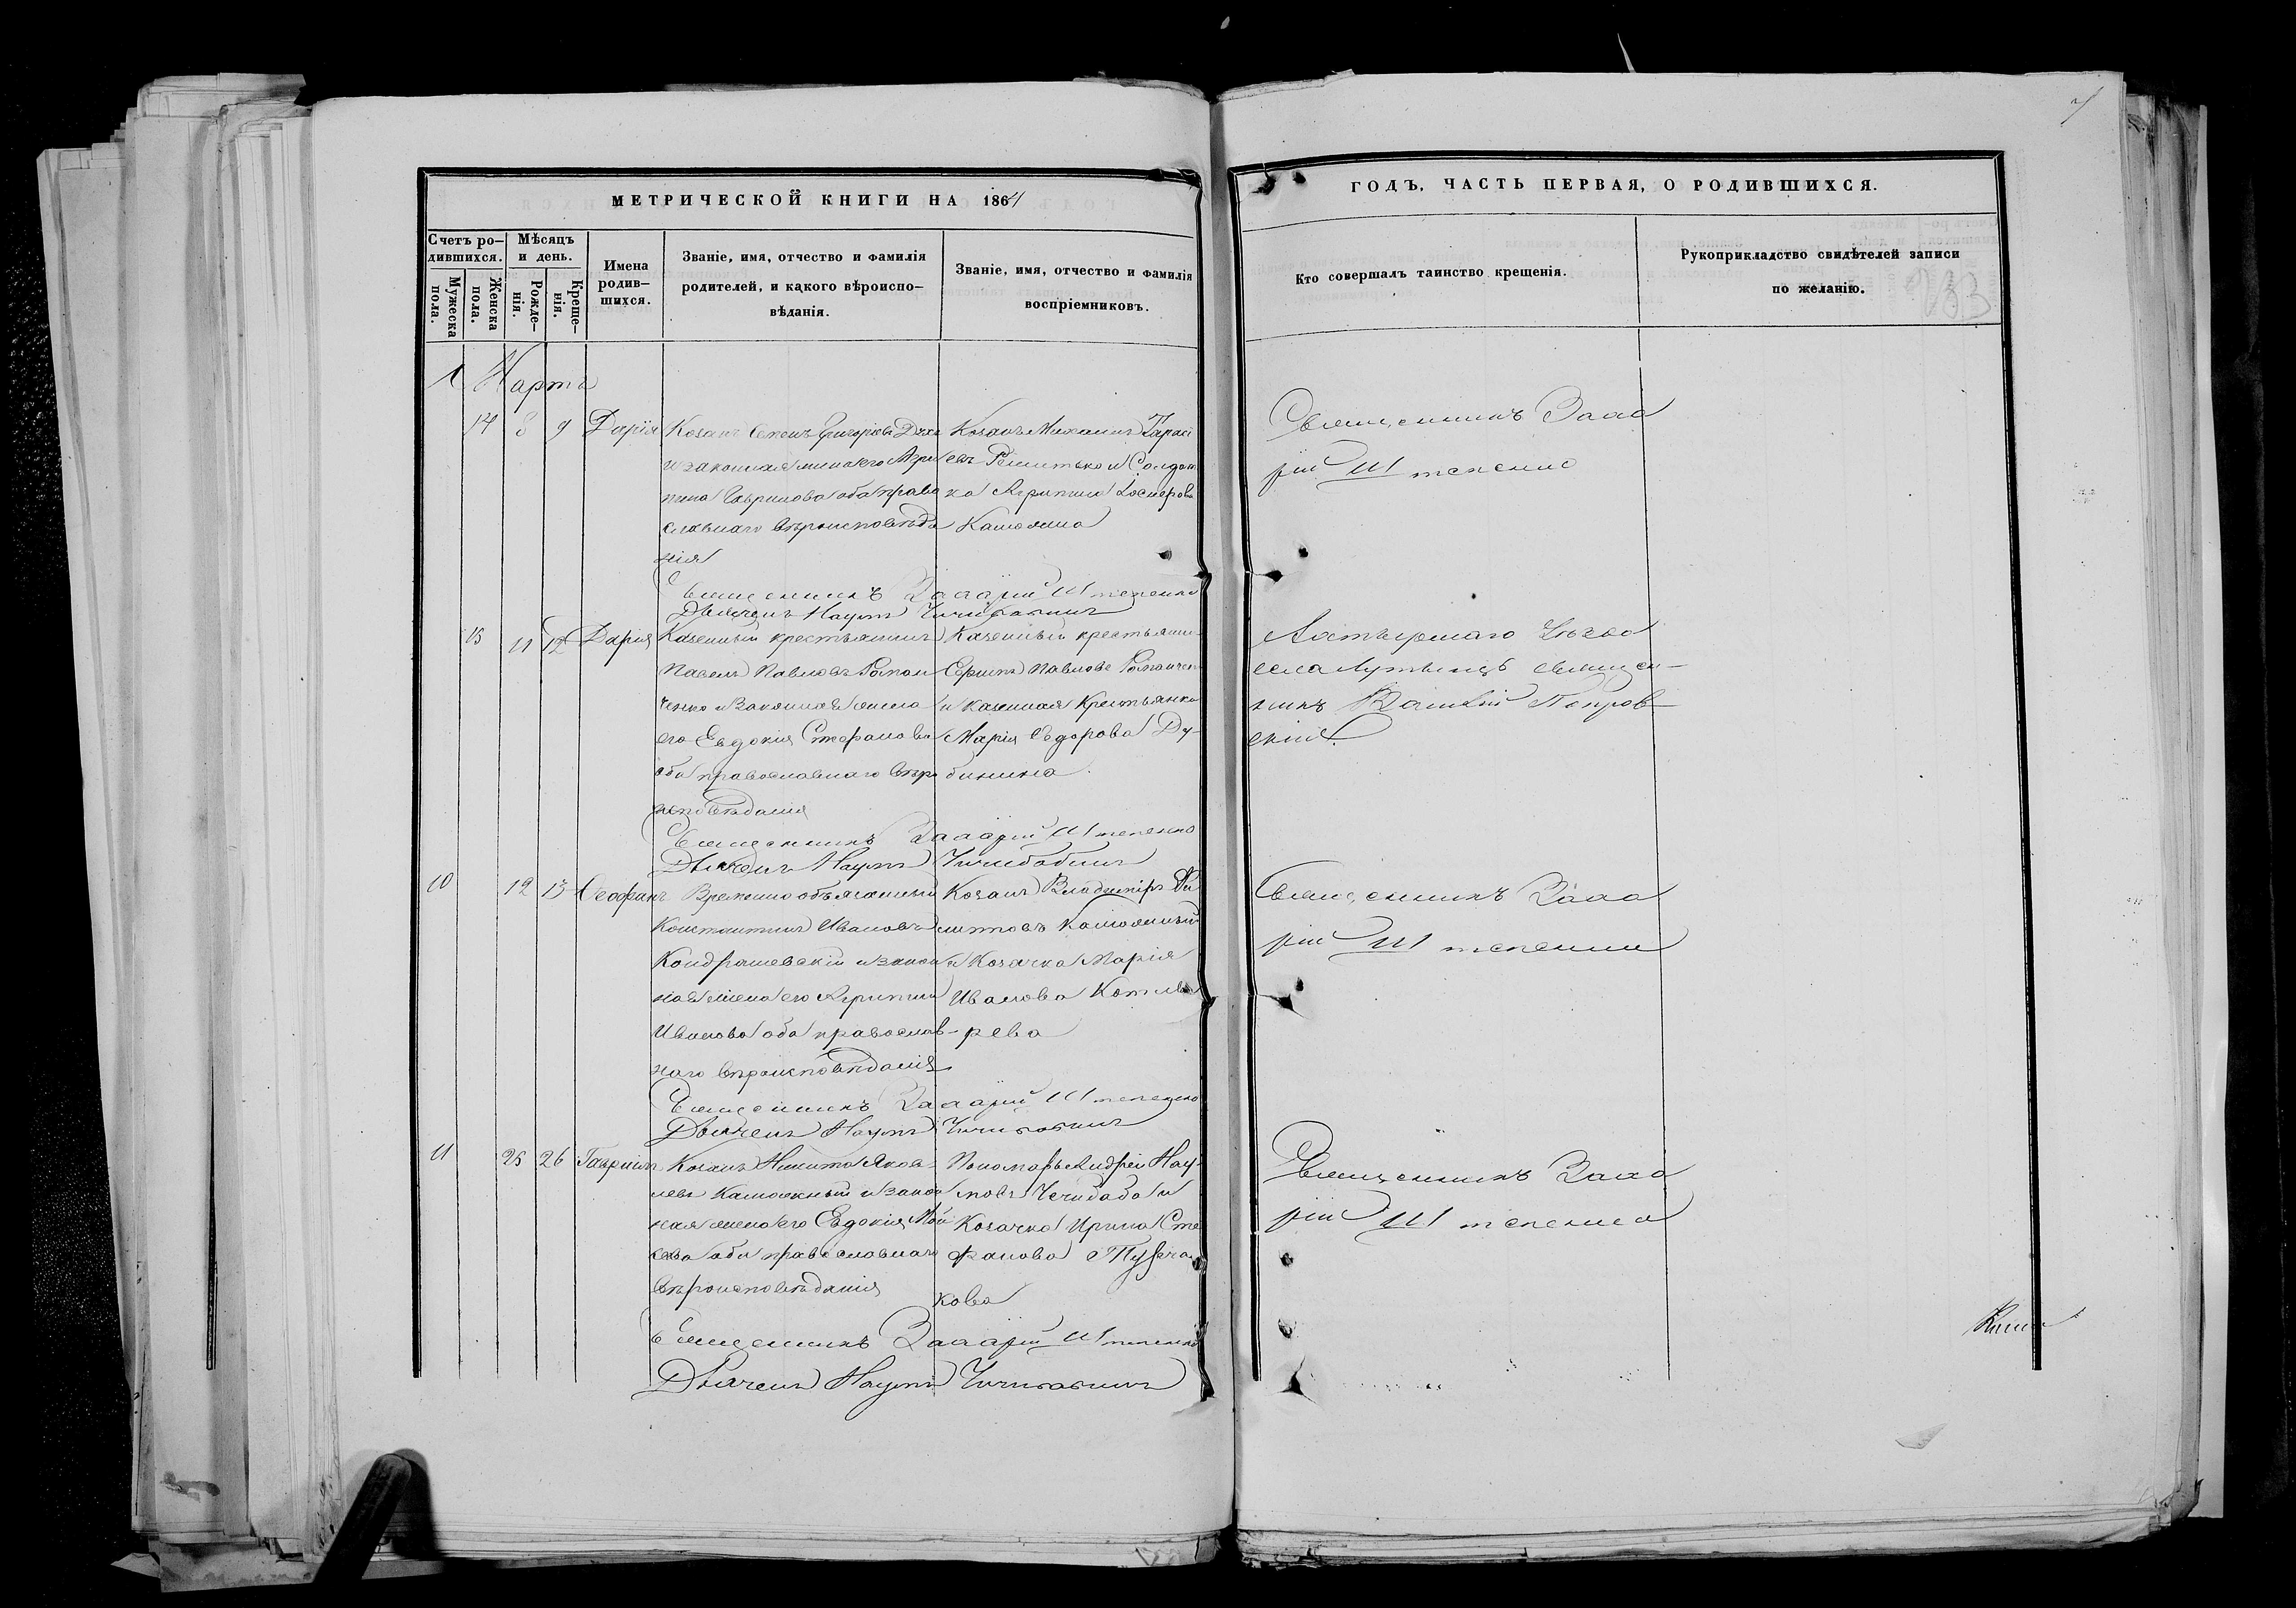 МЕТРИЧЕСКОЙ КНИГИ НА 1864
ГОДЪ, ЧАСТЬ ПЕРВАЯ, О РОДИВШИХСЯ.
Счетъ ро-
дившихся.
Мужеска
пола.
Женска
пола.
Мѣсяцъ
и день.
Рожде-
нія.
Креще-
нія.
Имена
родив-
шихся.
Званіе, имя, отчество и фамилія
родителей, и какого вѣроиспо-
вѣданія.
Званіе, имя, отчество и фамилія
воспріемниковъ.
Кто совершалъ таинство крещенія.
Рукоприкладство свидѣтелей записи
по желанію.
Мартъ
14 8 9 Дарія
Козакъ Семенъ Григоріевъ
и законная жена его Агри
пина оба право
славнаго вѣроисповѣда
нія
Козакъ Михаилъ Тарасі
евъ и Солдат
ка Агрипина
Священникъ Заха
рій Штепенко
Священникъ Захарій Штепенко
Дьячекъ Наумъ Чичибабинъ
15 11 12 Дарія
Казенный крестьянинъ
Павелъ Павловъ Роман
ченко и Законная жена
его Евдокія Стефанова
оба православнаго вѣро
исповѣданія
Казенный крестьяни
Павловъ Романчен
и казенная Крестьянка
Марія Ѳедорова Ду-
бинина
Ахтырскаго Уѣзда
села священ-
никъ Покров-
скій.
Священникъ Захарій Штепенко
Дьячекъ Наумъ Чичибабинъ
10 12 13 Ѳеофанъ
Временно обязанный
Константинъ Ивановъ
Кондрашевскій и закон
ная жена его Агрипина
Иванова оба православ-
наго вѣроисповѣданія
Козакъ Владиміръ
и Козачка Марія
Иванова Котля
рева
Священникъ Заха
рій Штепенко
Священникъ Захарій Штепенко
Дьячекъ Наумъ Чичибабинъ
11 25 26 Гавріилъ
Козакъ Никита Яков-
левъ и закон
ная жена его Евдокія Мой
сеева оба православнаго
вѣроисповѣданія
Пономарь Андрей Нау-
мовъ Чичибаба и
Козачка Ирина Сте
фанова
кова
Священникъ Заха
рій Штепенко
Священникъ Захарій Штепенко
Дьячекъ Наумъ Чичибабинъ